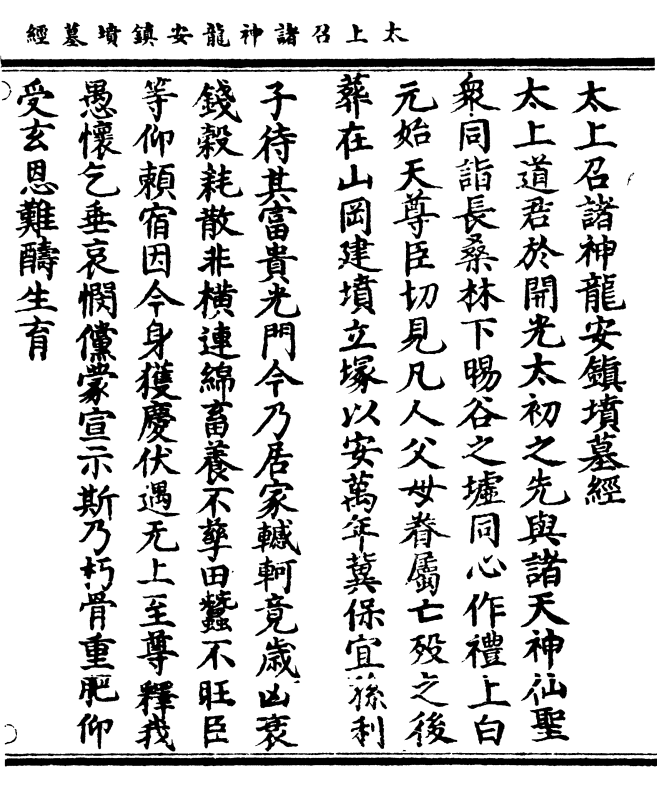 太上召諸神龍安鎮墳墓經
太上召諸神龍安鎮墳墓經
太上道君於開光太初之先與諸天神仙聖
衆同詣長桑林下暘谷之墟同心作禮上白
元始天尊臣切見凡人父母眷屬亡殁之後
葬在山岡建墳立塚以安萬年冀保宜孫利
子待其富貴光門今乃居家轗軻竟歲凶衰
錢穀耗散非橫連綿畜養不孳田蠶不旺臣
等仰賴宿因今身獲慶伏遇无上至尊釋我
愚懷乞垂哀憫儻蒙宣示斯乃朽骨重肥仰
受玄恩難酬生育